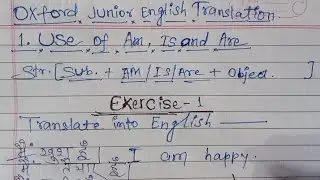 Oxford Junior English Translation.
1. Use of Am, Is and Are
Str. [Sub. + AM/Is/Are + Object.]
Exercise-1
Translate into English —
I am happy.